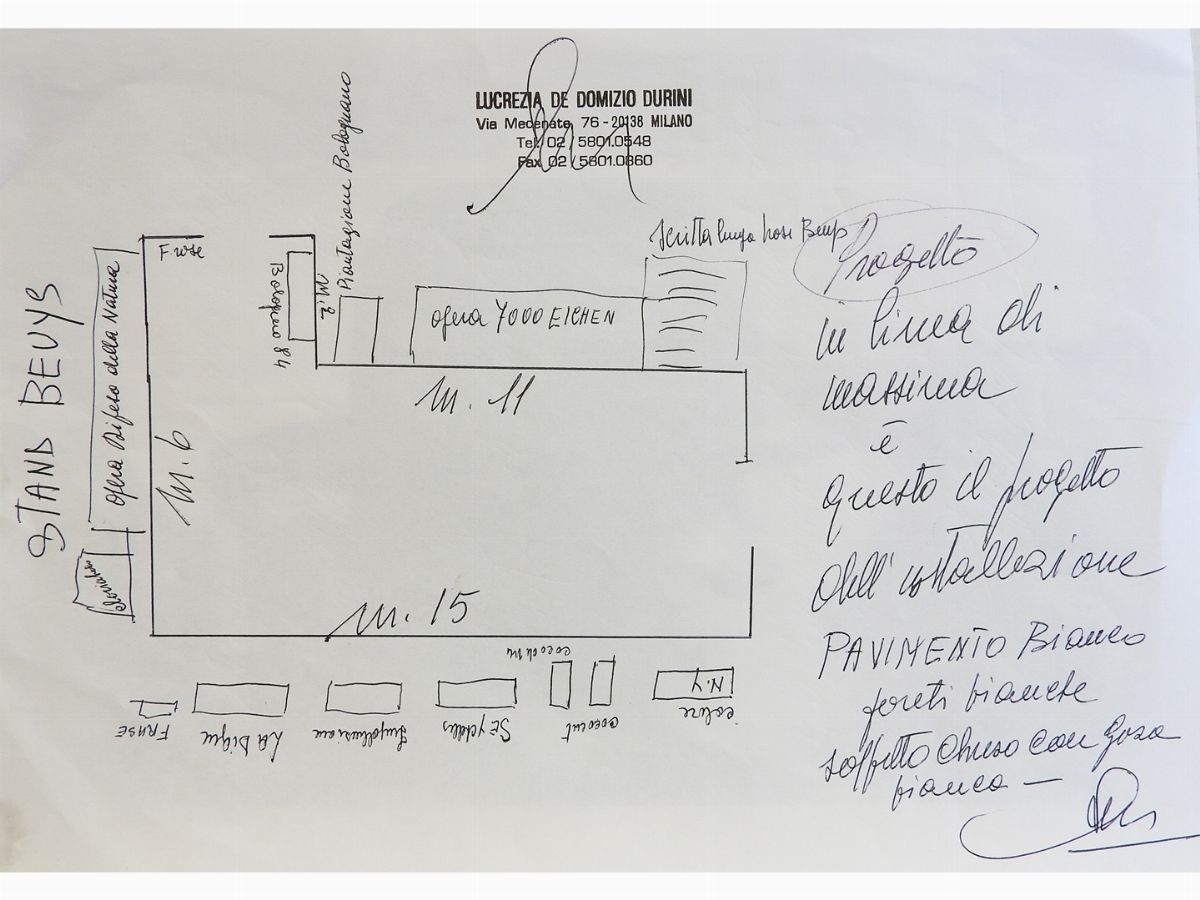 LUCREZIA DE DOMIZIO DURINI
Via Mecenate, 76 - 20138 MILANO
Tel. 02 / 5801.0548
Fax 02 / 5801.0860
STAND BEUYS
opera Difesa della Natura
Frase
Bolognano 84
m. 2
Piantagione Bolognano
opera 7000 EICHEN
scritta lunga frase Beuys
m. 11
m. 6
m. 15
FRASE
La Digue
Seychelles
coco de m
cocout
N.Y
colore
Progetto
in linea di
massima
è
questo il progetto
dell'installazione
PAVIMENTO Bianco
pareti bianche
soffitto chiuso con Garza
bianca —